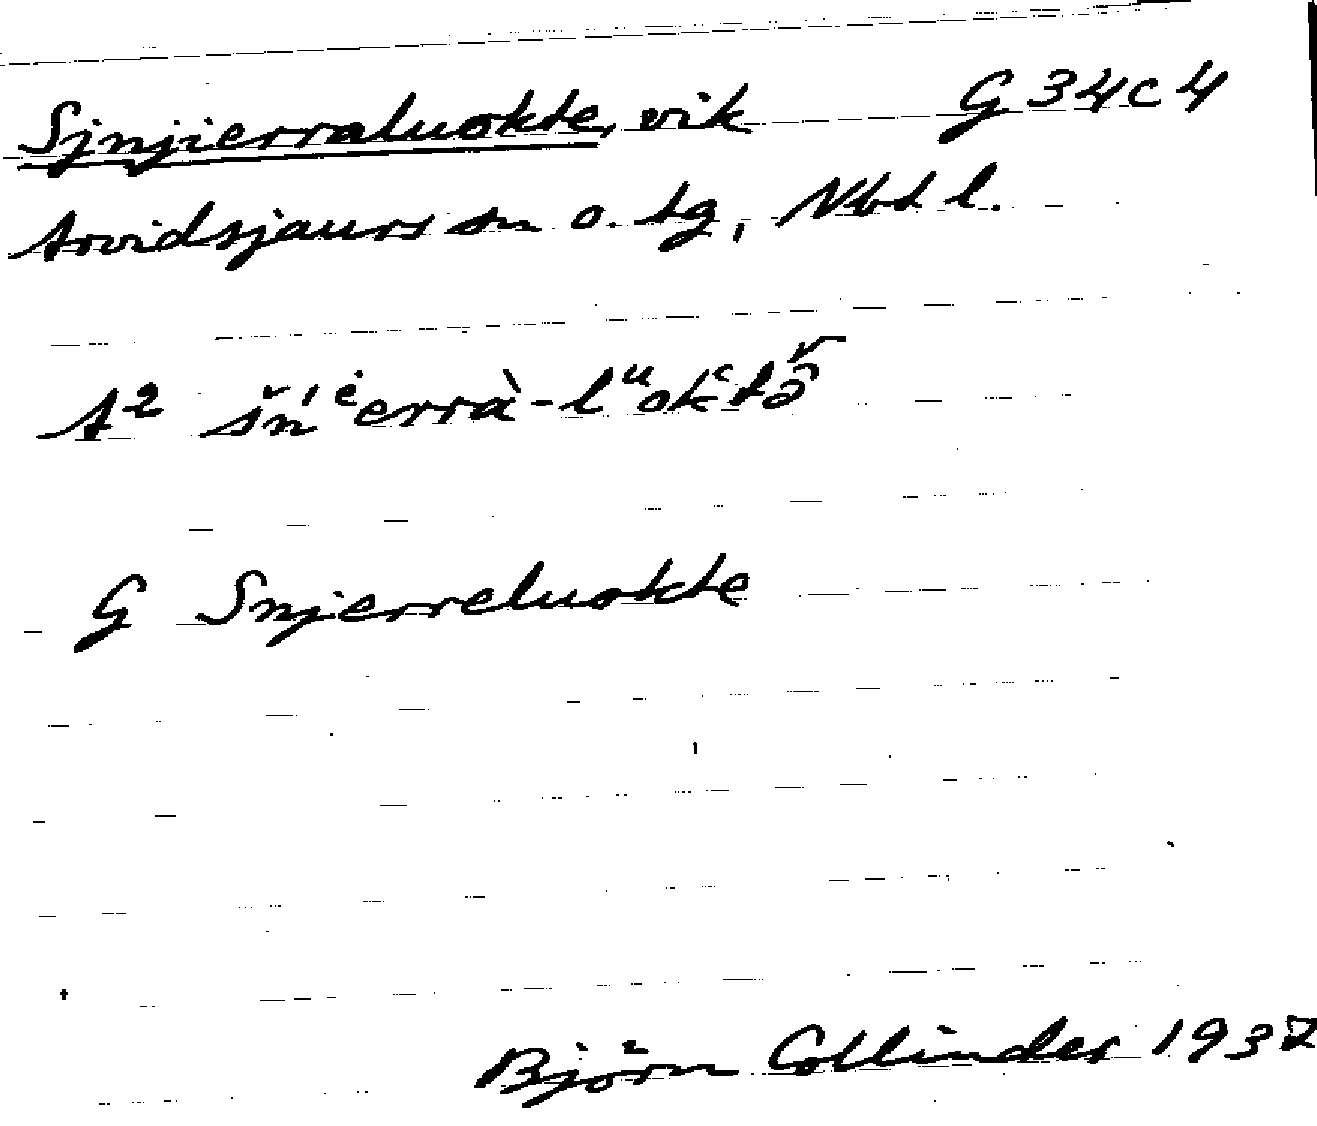 Sjnjierraluokte, vik G 34 c 4
Arvidsjaurs sn o. tg, Nbt l.
A² šń ᵉ̇errà-lᵘokᶜtə̑̆
G Snjerreluokte
Björn Collinder 1937